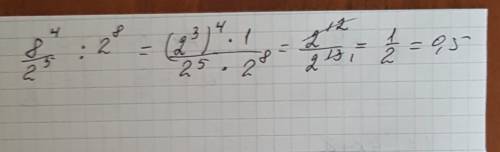 8⁴/2⁵ : 2⁸ = (2³)⁴ · 1 / 2⁵ · 2⁸ = 2¹²/2¹³ ₁ = 1/2 = 0,5